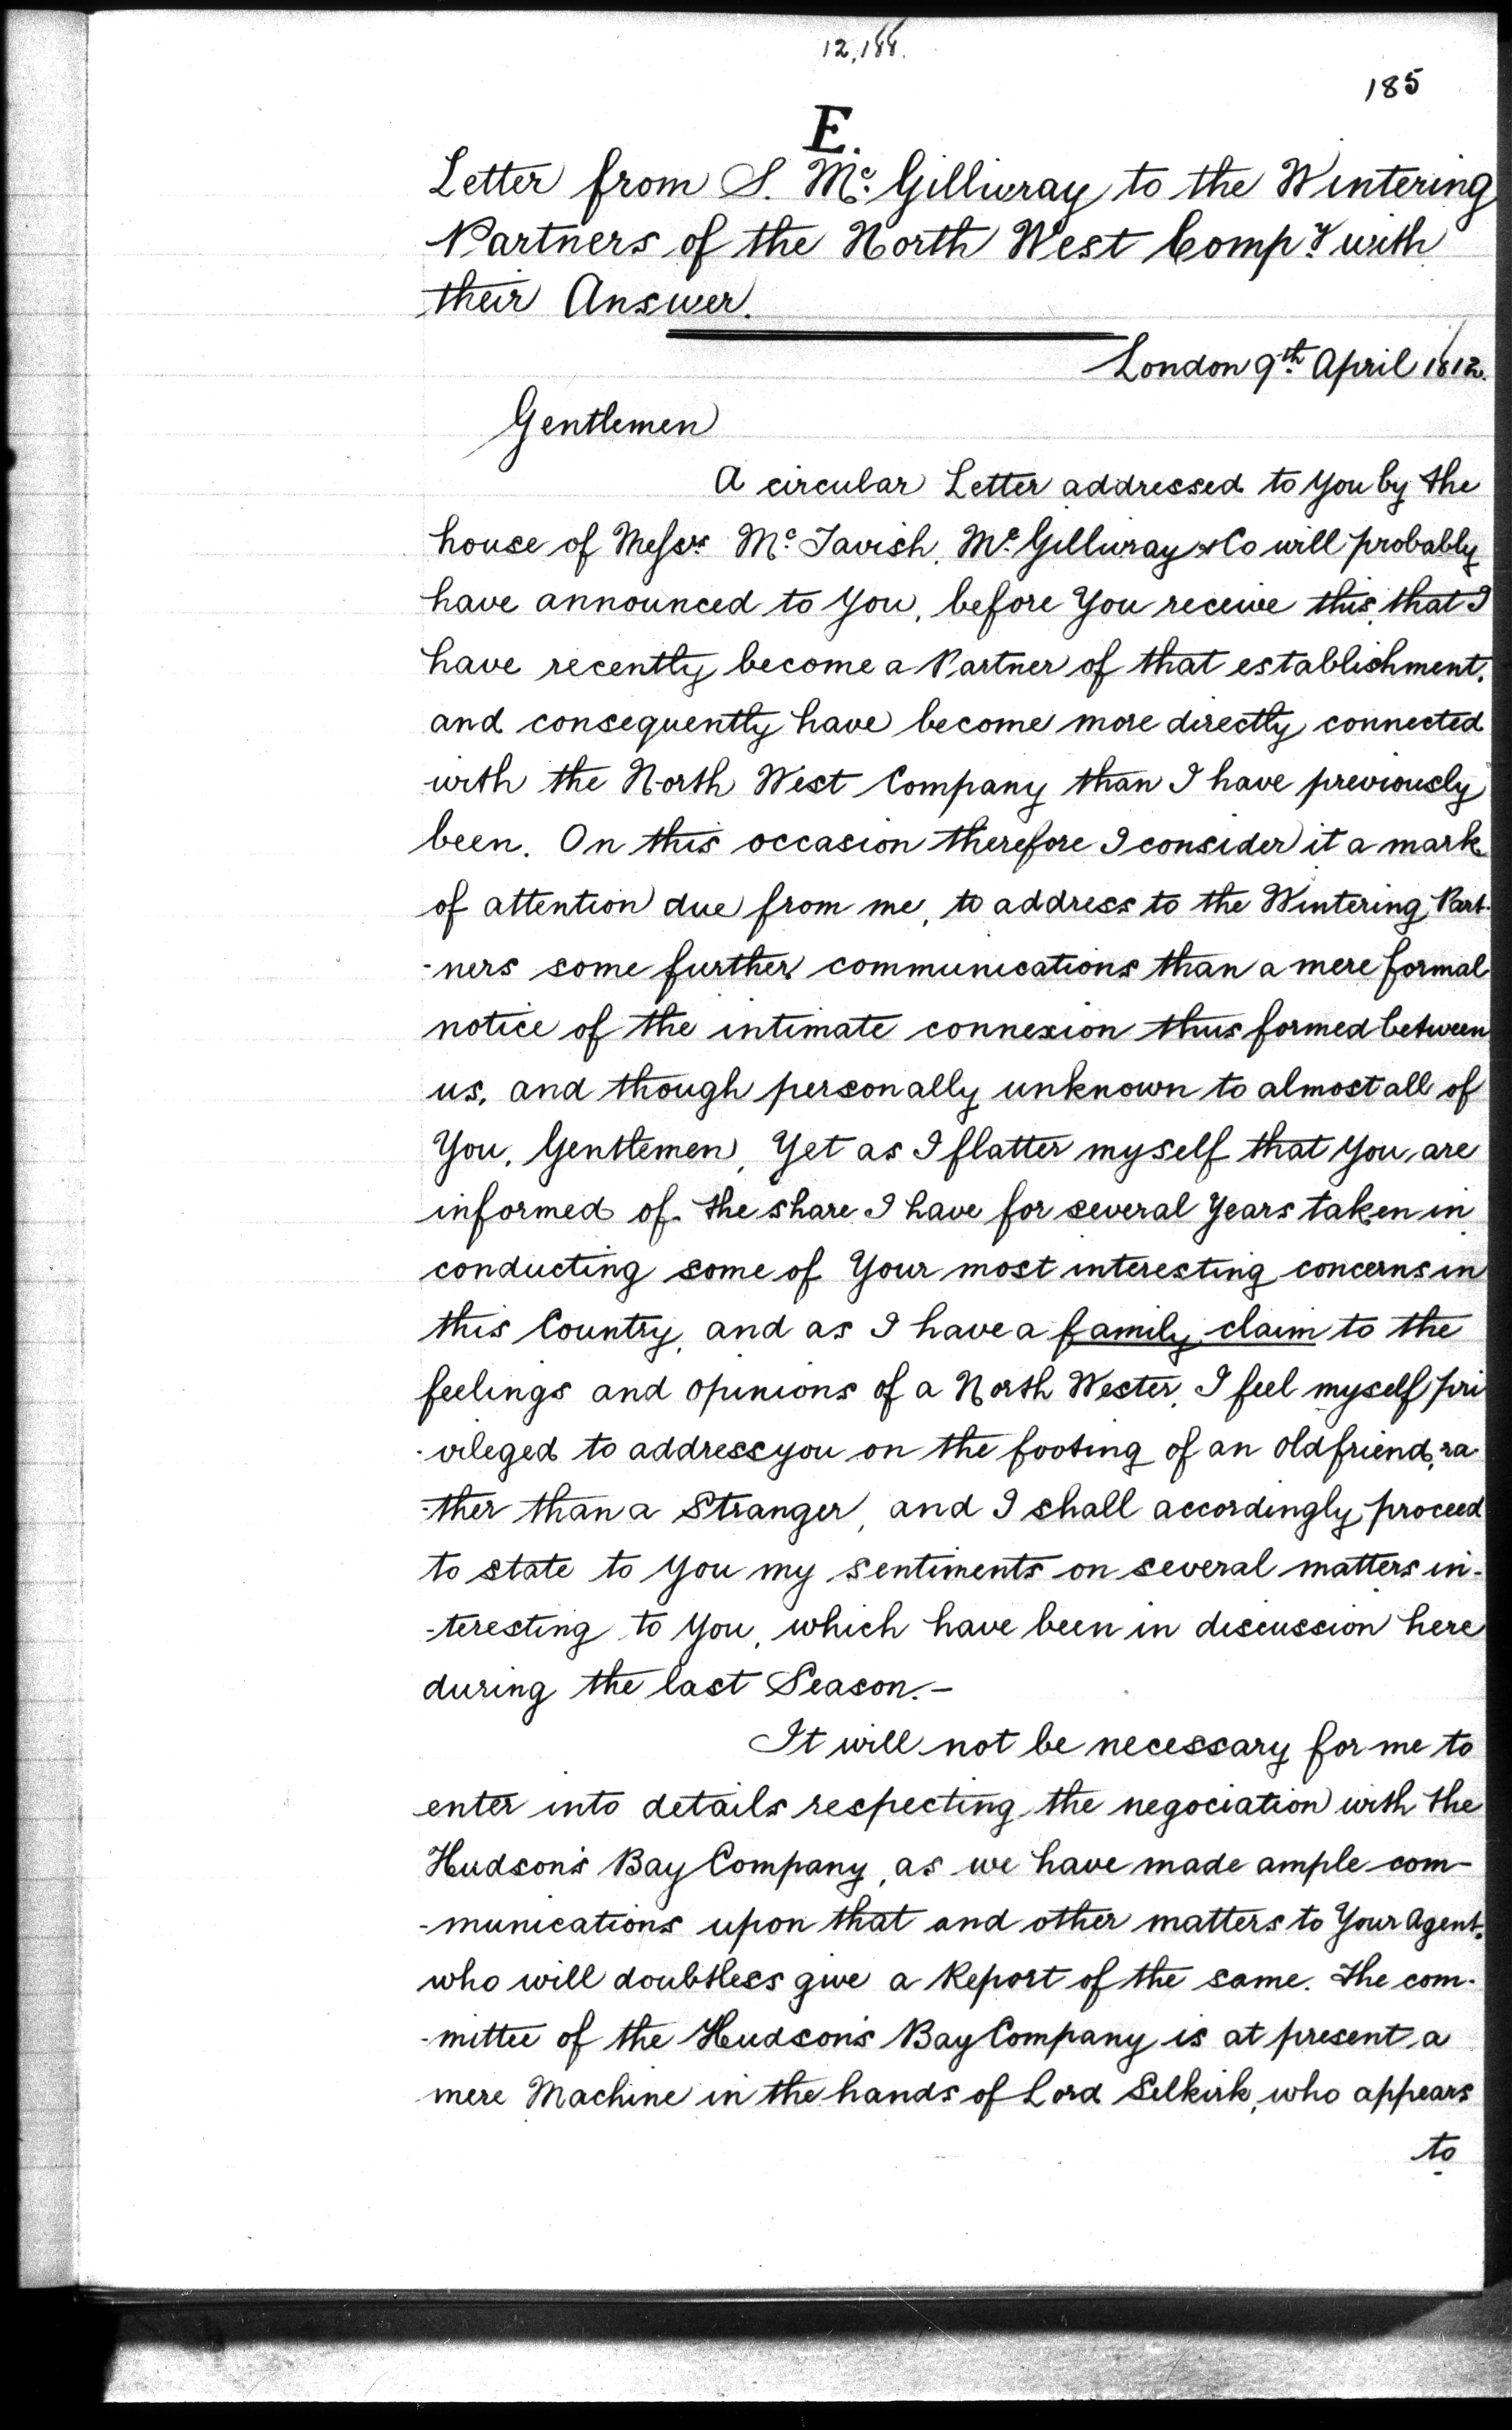 12,188.
185
E.
Letter from S. Mc. Gillivray to the Wintering
Partners of the North West Compy with
their Answer.
London 9th April 1812.
Gentlemen
A circular Letter addressed to You by the
house of Messrs Mc Tavish, Mc Gillivray & Co will probably
have announced to You, before You receive this, that I
have recently become a Partner of that establishment,
and consequently have become more directly connected
with the North West Company than I have previously
been. On this occasion therefore I consider it a mark
of attention due from me, to address to the Wintering Part-
-ners some further communications than a mere formal
notice of the intimate connexion thus formed between
us, and though personally unknown to almost all of
You, Gentlemen, Yet as I flatter myself that You are
informed of the share I have for several Years taken in
conducting some of Your most interesting concerns in
this Country, and as I have a family claim to the
feelings and opinions of a North Wester, I feel myself pri
-vileged to address you on the footing of an old friend, ra
-ther than a Stranger, and I shall accordingly proceed
to state to You my sentiments on several matters in-
-teresting to You, which have been in discussion here
during the last Season.-
It will not be necessary for me to
enter into details respecting the negociation with the
Hudson's Bay Company, as we have made ample com-
-munications upon that and other matters to Your Agent,
who will doubtless give a Report of the same. The com-
-mittee of the Hudson's Bay Company is at present a
mere Machine in the hands of Lord Selkirk, who appears
to